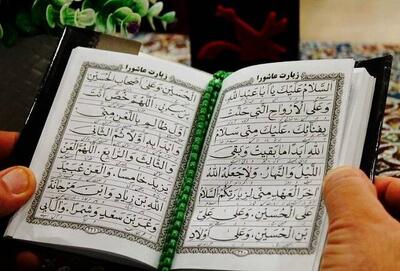 زیارت عاشورا
اَلسَّلامُ عَلَيْكَ يا اَبا عَبْدِ اللهِ
وَعَلَى الْاَرْواحِ الَّتى حَلَّتْ
بِفِنائِكَ، عَلَيْكَ مِنّى سَلامُ
اللهِ اَبَدًا ما بَقيتُ وَبَقِىَ
اللَّيْلُ وَالنَّهارُ، وَلا جَعَلَهُ اللهُ
اخِرَ الْعَهْدِ مِنّى لِزِيارَتِكُمْ، اَلسَّلامُ
عَلَى الْحُسَيْنِ، وَعَلى عَلِىِّ
بْنِ الْحُسَيْنِ، وَعَلى اَوْلادِ
زیارت عاشورا
الْحُسَيْنِ، وَعَلى اَصْحابِ الْحُسَيْنِ
اَللّهُمَّ خُصَّ اَنْتَ
اَوَّلَ ظالِمٍ بِاللَّعْنِ مِنّى
وَابْدَاْ بِهِ اَوَّلًا ثُمَّ الثّانِىَ
وَالثّالِثَ وَالرّابِعَ، اَللّهُمَّ الْعَنْ
يَزيدَ خامِسًا، وَالْعَنْ عُبَيْدَ
اللهِ بْنَ زِيادٍ وَابْنَ مَرْجانَةَ
وَعُمَرَ بْنَ سَعْدٍ وَشِمْرًا، وَالَ اَبى